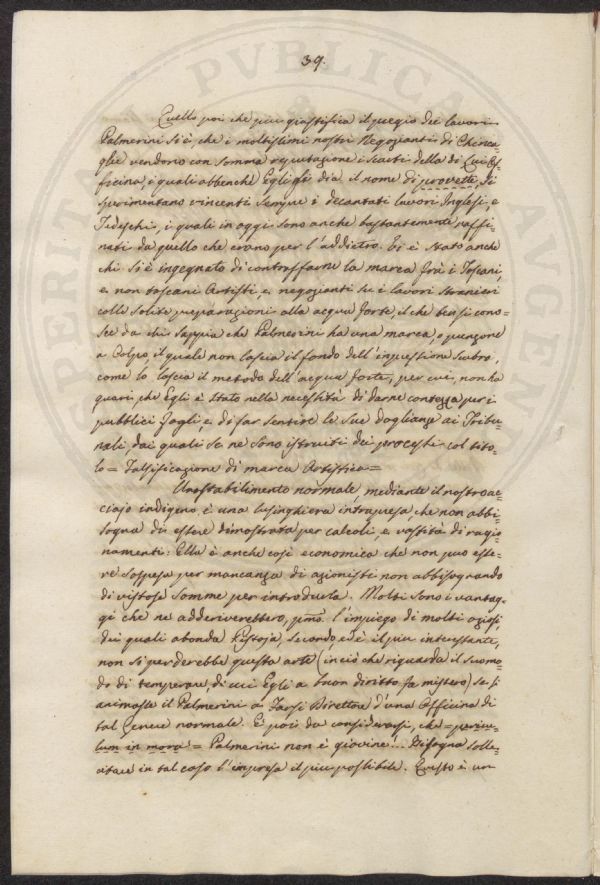 39.
Quello poi che piu giustifica il pregio dei lavori
Palmerini si è, che i moltissimi nostri Negozianti di Chinca=
glie vendono con somma reputazione i scarti della di Lui Of=
ficina, i quali abbenchè Egli gli dia il nome di provette, si
sperimentano vincenti sempre i decantati lavori Inglesi, e
Tedeschi, i quali in oggi sono anche bastantemente raffi=
nati da quello che erano per l'addietro. Vi è stato anche
chi si è ingegnato di contraffarne la marca frà i Toscani,
e non toscani Artisti, e negozianti su i lavori stranieri
colle solite preparazioni alla acqua forte, il che ben si cono=
sce da chi sappia che Palmerini ha una marca, o punzone
a Colpo, il quale non lascia il fondo dell'impressione scabro,
come lo lascia il metodo dell'acqua forte, per cui, non ha
guari, che Egli è stato nella necessità di darne contezza per i
pubblici fogli, e di far sentire le sue doglianze ai Tribu=
nali, dai quali se ne sono istruiti dei processi col tito=
lo = Falsificazione di marca Artistica=
Uno stabilimento normale, mediante il nostro ac=
ciajo indigeno, è una lusinghiera intrapresa, che non abbi=
sogna di essere dimostrata per calcoli, e vastità di ragio=
namenti: Ella è anche così economica che non può esse=
re sospesa per mancanza di azionisti non abbisognando
di vistose somme per introdurla. Molti sono i vantag=
gi che ne adderiverebbero, pmo. l'impiego di molti oziosi,
dei quali abonda Pistoja, secondo, ed è il piu interessante,
non si perderebbe questa arte (in ciò che riguarda il suo mo=
do di temperare, di cui Egli a buon diritto fa mistero) se si
animasse il Palmerini a farsi Direttore d'una Officina di
tal genere normale. E' poi da considerarsi, che = pericu=
lum in mora = Palmerini non è giovine... Bisogna solle=
citare in tal caso l'impresa il piu possibile. Questo è un
PVBLICA